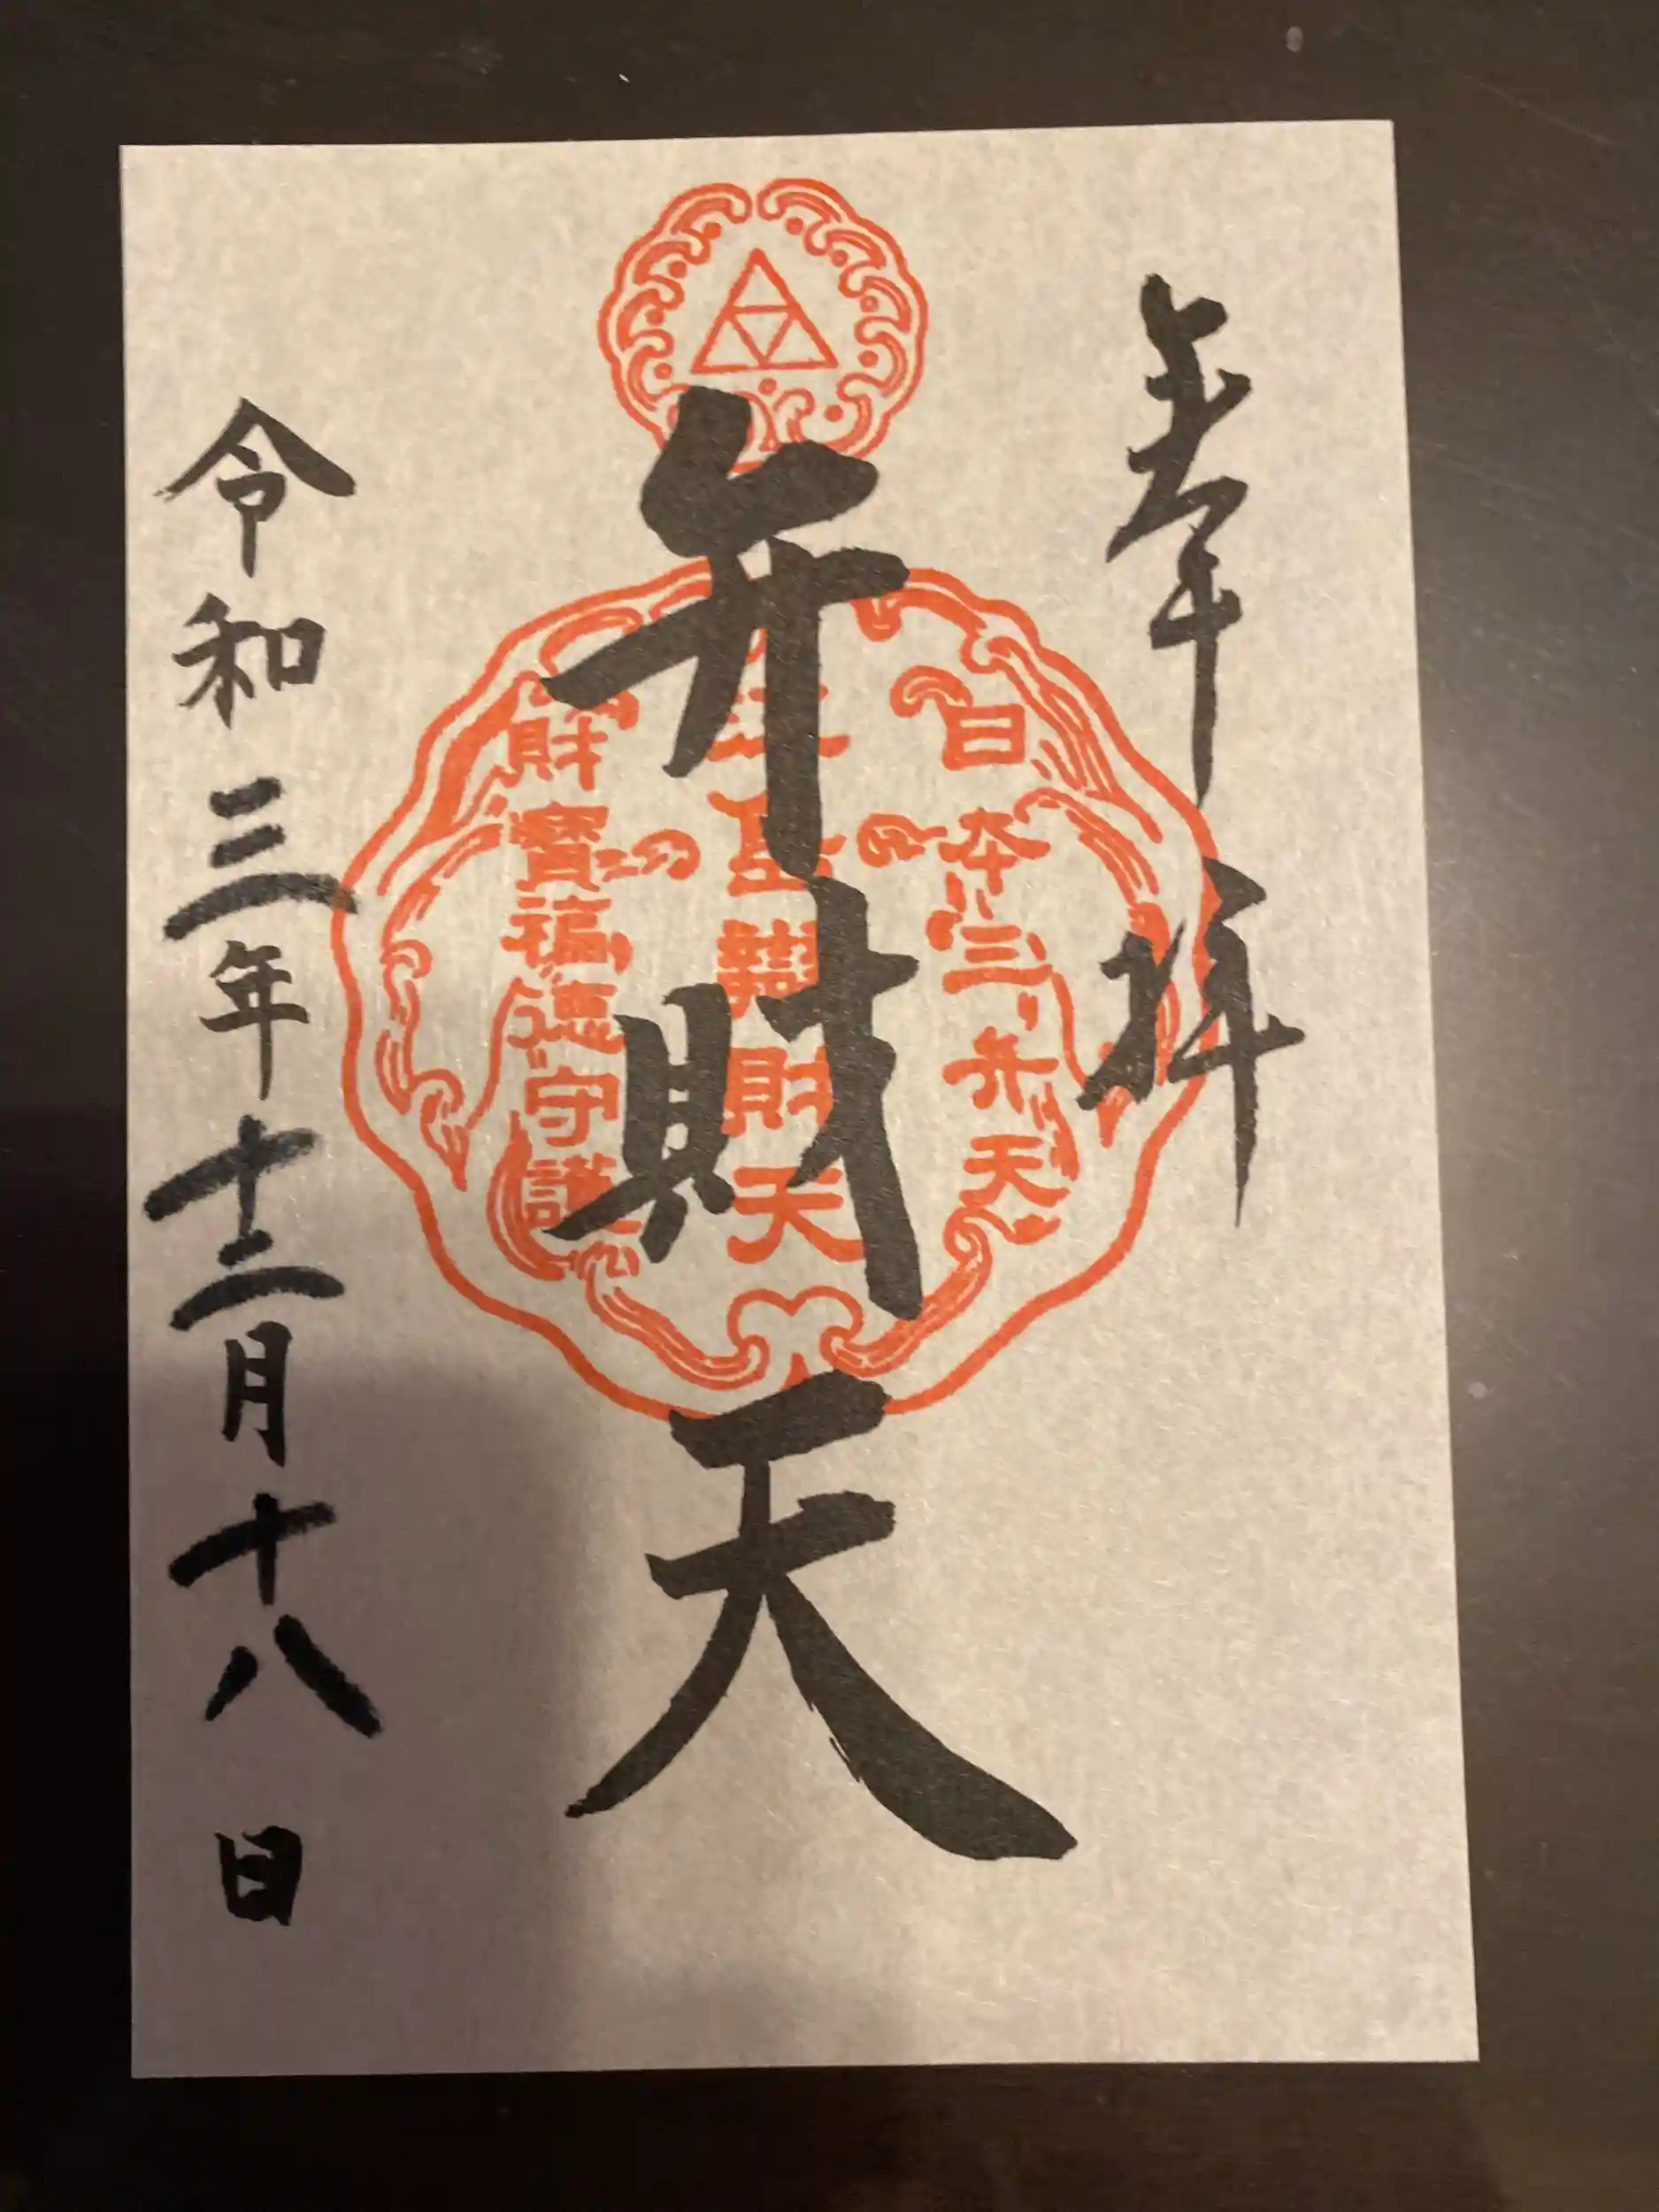 奉拝
弁財天
日本三弁天
辯財天
財寳福徳守護
令和三年十二月十八日